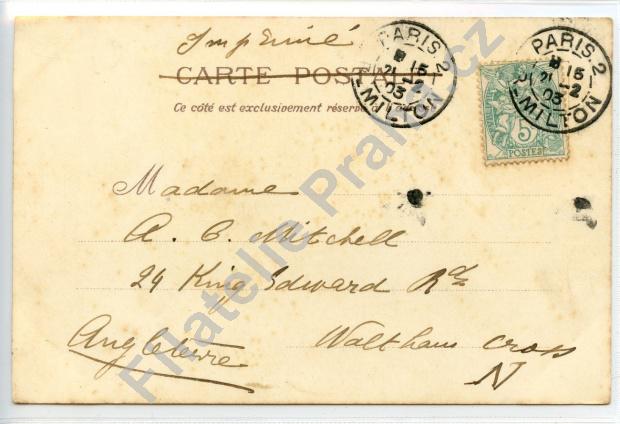 Imprimé
CARTE POSTALE
Ce côté est exclusivement réservé
PARIS 2
15
21 -2
03
MILTON
PARIS 2
15
21 -2
03
MILTON
5
POSTES
Madame
A. C. Mitchell
24 King Edward Rd
Waltham Cross
Angleterre
N
Filatelie Praha.cz